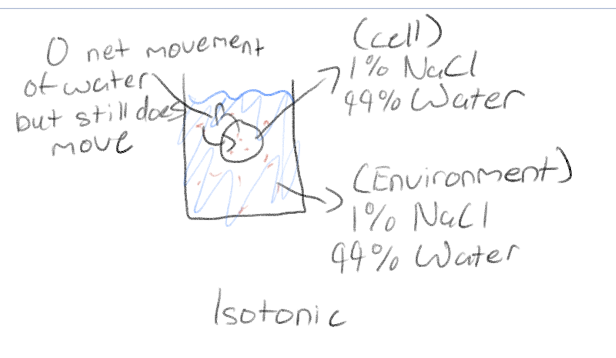 0 net movement
of water
but still does
move
(cell)
1% NaCl
99% Water
(Environment)
1% NaCl
99% Water
Isotonic